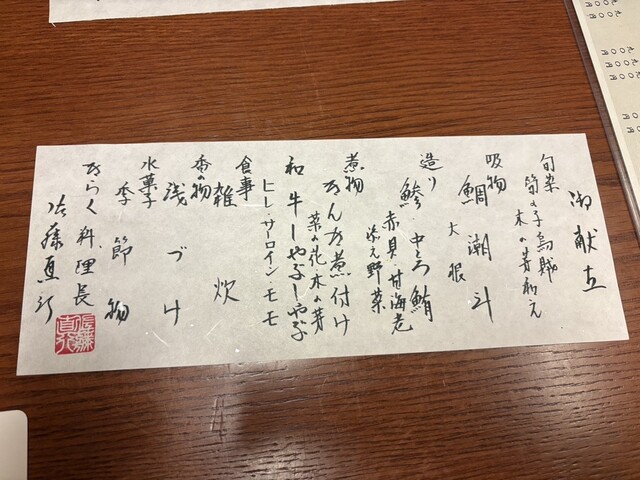 御献立
旬菜
筍の子烏賊
木の芽和え
吸物
鯛潮汁
大根
造り
鯵・中とろ鮪
赤貝・甘海老
添え野菜
煮物
きんき煮付け
菜の花木の芽
和牛しゃぶしゃぶ
ヒレ・サーロイン・モモ
食事
雑炊
香の物
浅づけ
水菓子
季節物
きらく料理長
佐藤直行
九〇〇円